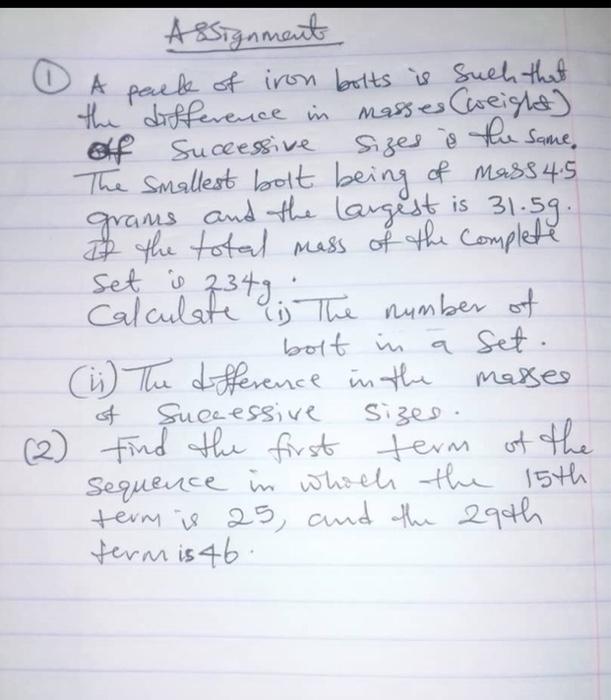 Assignment
① A pack of iron bolts is such that
the difference in masses (weight)
of successive sizes is the same.
The smallest bolt being of mass 4.5
grams and the largest is 31.5g.
If the total mass of the complete
set is 234g.
Calculate (i) The number of
bolt in a set.
(ii) The difference in the masses
of successive sizes.
(2) Find the first term of the
sequence in which the 15th
term is 25, and the 29th
term is 46.